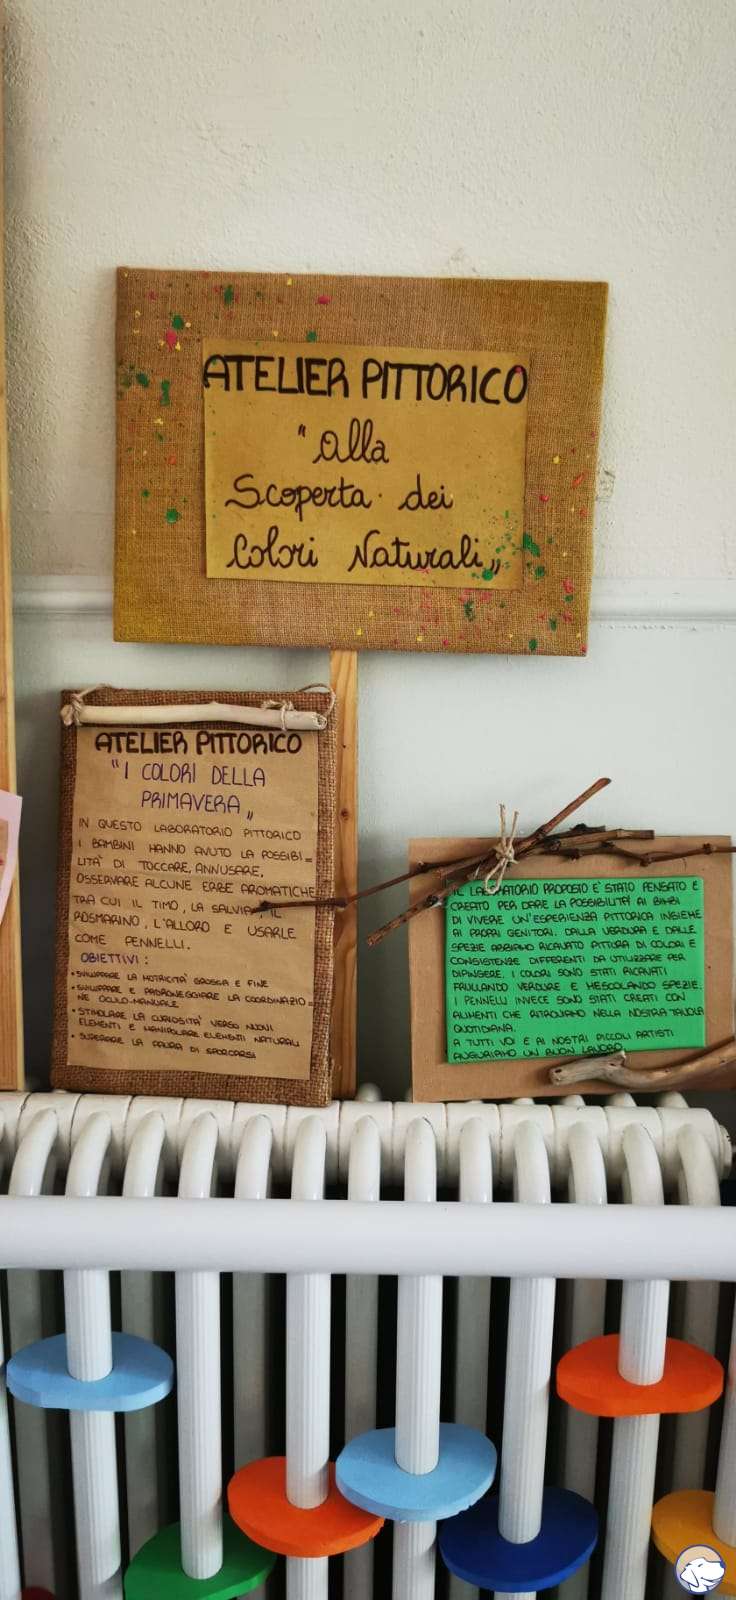 ATELIER PITTORICO
"Alla
Scoperta dei
Colori Naturali"
ATELIER PITTORICO
"I COLORI DELLA
PRIMAVERA"
IN QUESTO LABORATORIO PITTORICO
I BAMBINI HANNO AVUTO LA POSSIBI=
LITÀ DI TOCCARE, ANNUSARE,
OSSERVARE ALCUNE ERBE AROMATICHE
TRA CUI IL TIMO, LA SALVIA, IL
ROSMARINO, L'ALLORO E USARLE
COME PENNELLI.
OBIETTIVI:
• SVILUPPARE LA MOTRICITÀ GROSSA E FINE
• SVILUPPARE E PADRONEGGIARE LA COORDINAZIO=
NE OCULO-MANUALE
• STIMOLARE LA CURIOSITÀ VERSO NUOVI
ELEMENTI E MANIPOLARE ELEMENTI NATURALI
• SUPERARE LA PAURA DI SPORCARSI
IL LABORATORIO PROPOSTO E' STATO PENSATO E
CREATO PER DARE LA POSSIBILITA' AI BIMBI
DI VIVERE UN'ESPERIENZA PITTORICA INSIEME
AI PROPRI GENITORI. DALLA VERDURA E DALLE
SPEZIE ABBIAMO RICAVATO PITTURA DI COLORI E
CONSISTENZE DIFFERENTI DA UTILIZZARE PER
DIPINGERE. I COLORI SONO STATI RICAVATI
FRULLANDO VERDURE E MESCOLANDO SPEZIE.
I PENNELLI INVECE SONO STATI CREATI CON
ALIMENTI CHE RITROVIAMO NELLA NOSTRA TAVOLA
QUOTIDIANA.
A TUTTI VOI E AI NOSTRI PICCOLI ARTISTI
AUGURIAMO UN BUON LAVORO